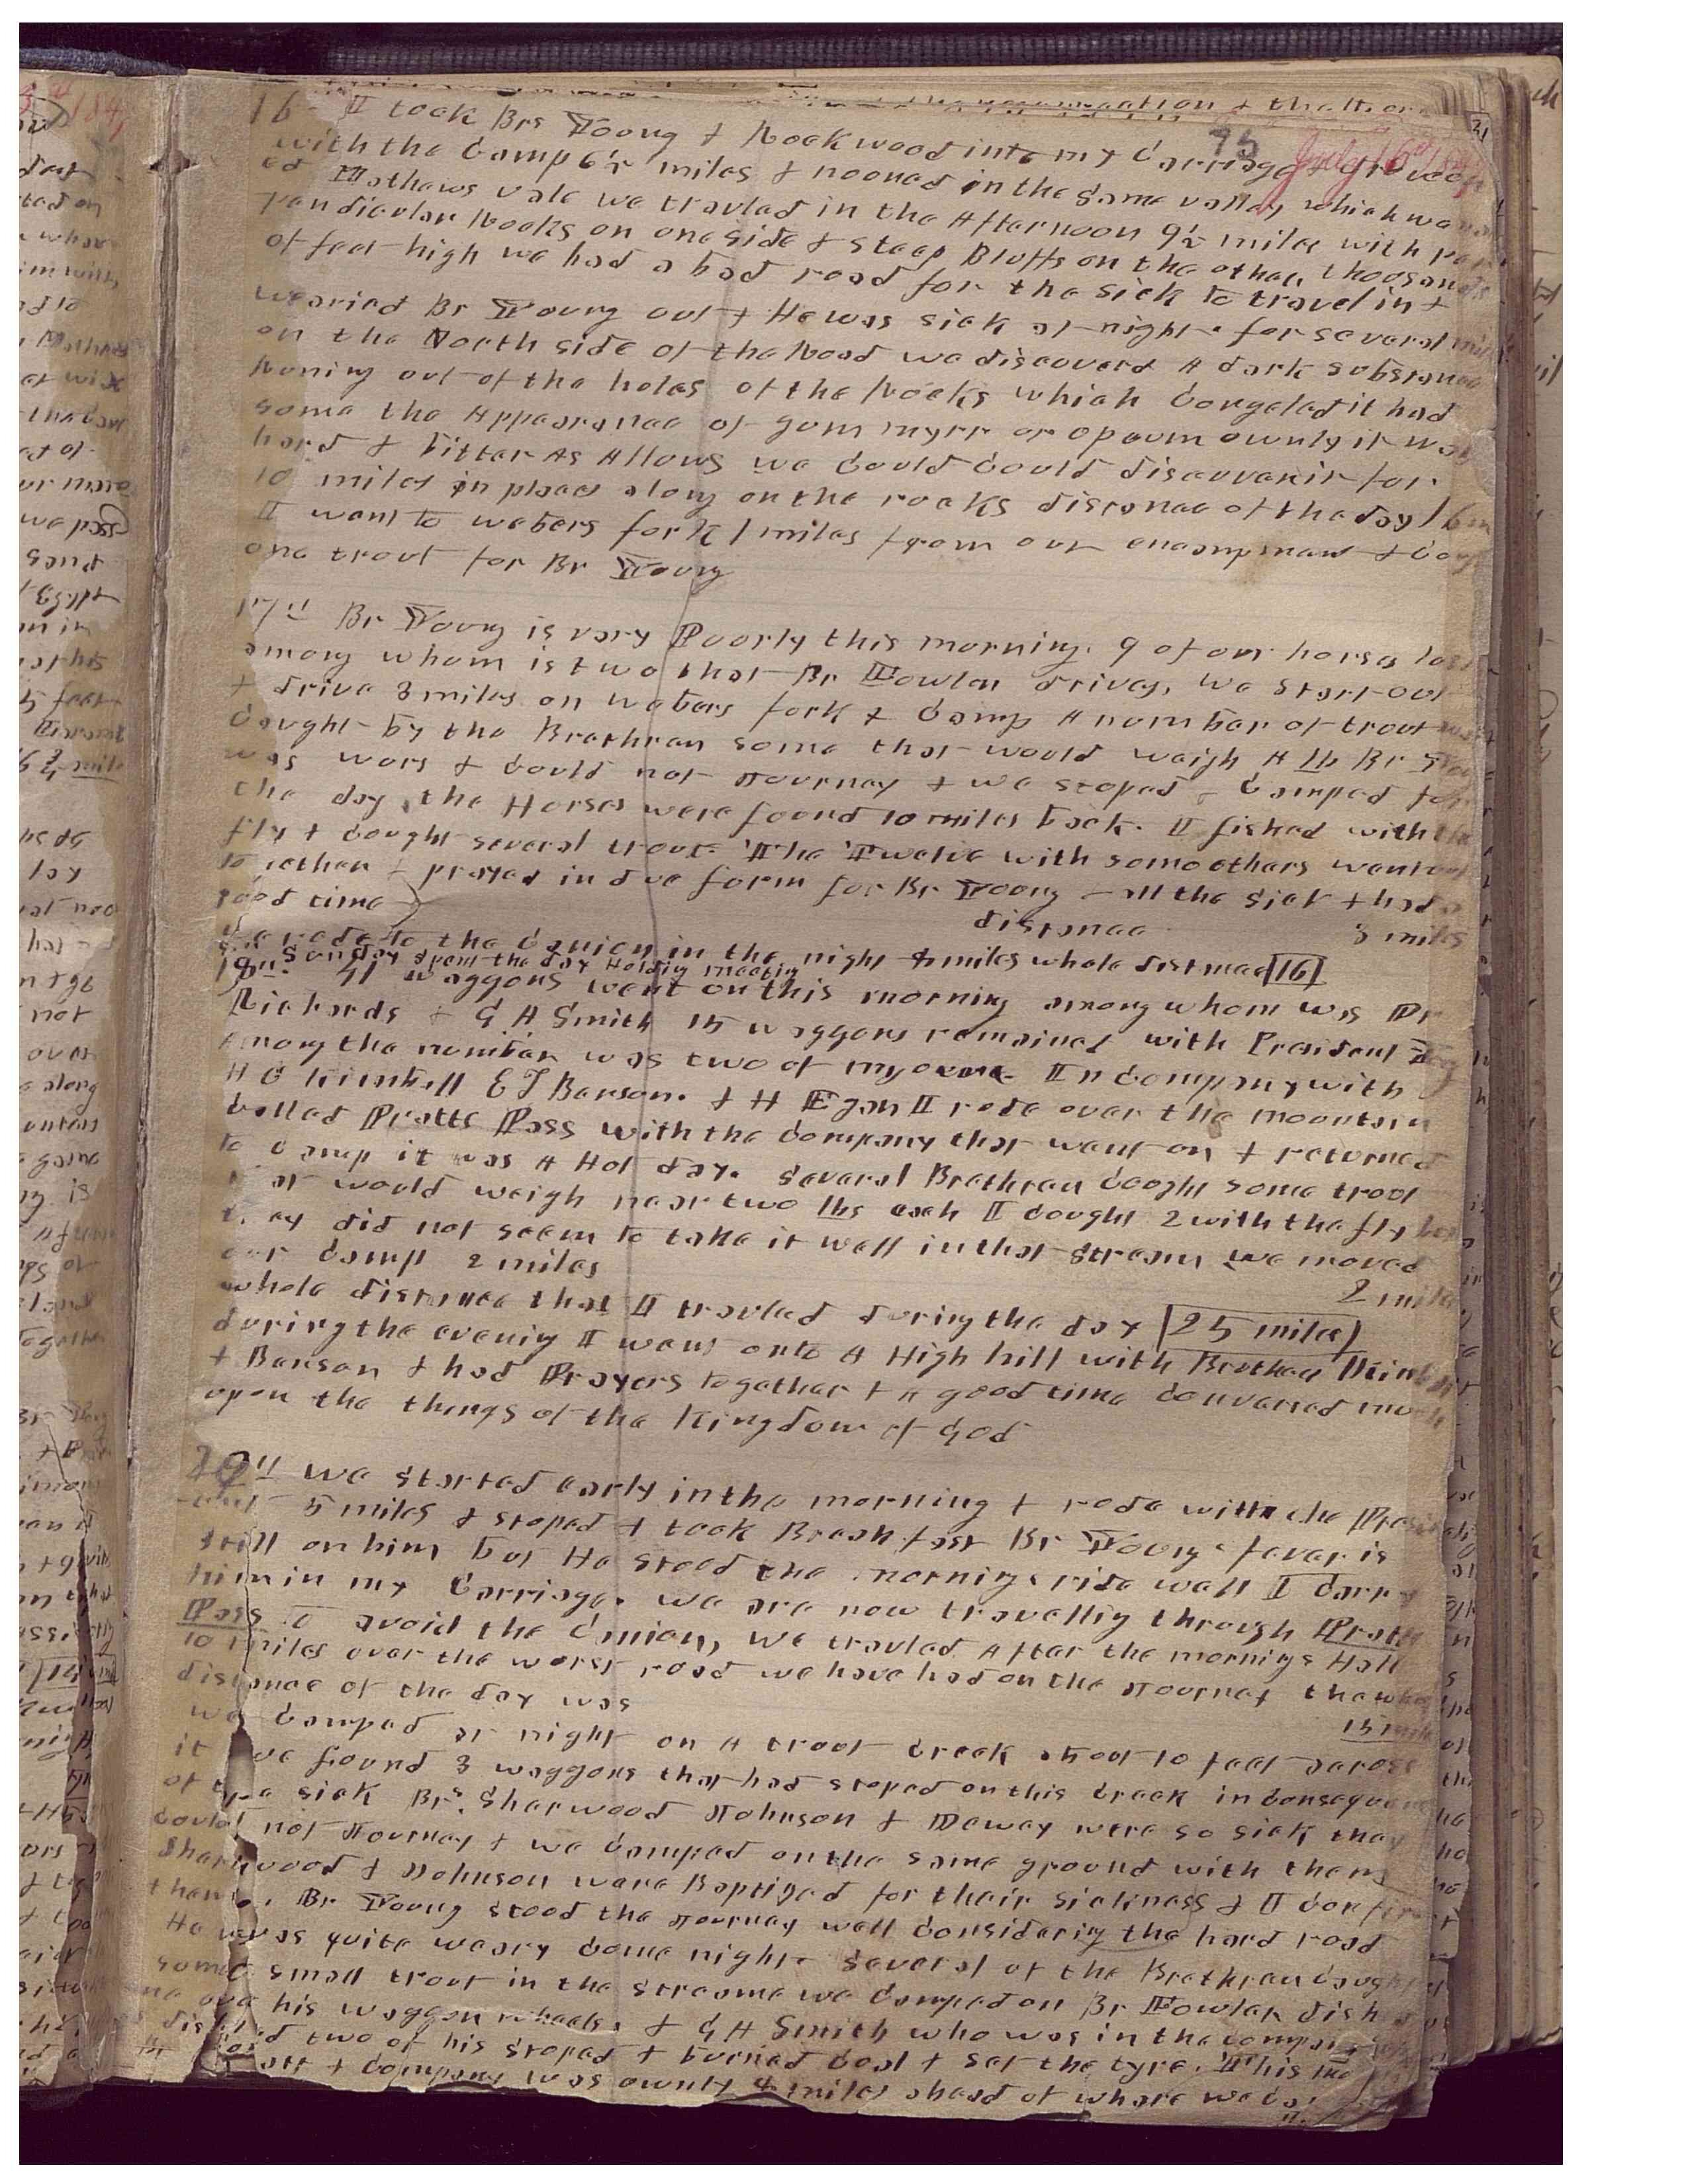 16 I took Brs Young & Rockwood into my Carriage & drove
July 16th 184
75
with the Camp 6 1/2 miles & nooned in the same valley which
Mathews vale we travled in the Afternoon 9 1/2 miles with per
pendicular Rocks on one side & steep Bluffs on the other thousands
of feet high we had a bad road for the sick to travel in &
wearied Br Young out & He was sick at night. for several
on the North side of the Road we discoverd A dark substance
Runing out of the holes of the Rocks which Congeled it had
some the Appearance of gum myrr or opoum ownly it was
hard & bitter As Allows we Could Could discover it for
10 miles in places along on the rocks distance of the day 16
I went to webers fork 1 miles from our encampment &
one trout for Br Young
17th Br Young is very Poorly this morning. 9 of our horses lost
among whom is two that Br Fowler drives, we start out
& drive 3 miles on webers fork & Camp A number of trout
Caught by the Brethren some that would weigh A lb Br
was wors & Could not Journey & we stoped & Camped for
the day, the Horses were found 10 miles back. I fished with the
fly & Caught several trout. The Twelve with some others went
together & prayed in due form for Br Young & all the sick & had a
good time distance 3 miles
rode to the Canion in the night miles whole distance 16
Sunday spent the day Holdig meetig
41 waggons went on this morning among whom was Dr
Richards & G A Smith 15 waggons remained with President
Among the number was two of my own. In Company with
H C Kimball E T Benson. & H Egan I rode over the mountain
Called Pratts Pass with the Company that went on & returned
to Camp it was A Hot day. several Brethren Caught some trout
that would weigh near two lbs each I Caught 2 with the fly but
they did not seem to take it well in that stream we moved
our Camp 2 miles 2 miles
whole distance that I travled during the day 25 miles
during the evenig I went onto A High hill with Brother Kimball
& Benson & had Prayers together & A good time Conversed much
upon the things of the Kingdom of God
20th we started early in the morning & rode with the
5 miles & stoped & took Breakfast Br Young fever is
still on him but He stood the mornings ride well I Carry
him in my Carriage. we are now travellig through Pratts
Pass to avoid the Canion, we travled After the mornigs Halt
10 miles over the worst road we have had on the Journey the whole
distance of the day was 15 mile
we Camped at night on A trout Creek about 10 feet across
it we found 3 waggons that had stoped on this Creek in Consequence
of the sick Brs. Sherwood Johnson & Dewey were so sick they
could not Journey & we Camped on the same ground with them
Sherwood & Johnson ware Baptized for their sickness & I Confirmed
them. Br Young stood the Journey well Considering the hard road
He was quite weary Come night. Several of the Brethren Caught
some small trout in the streame we Camped on Br Fowler dish
one his waggon wheels. & G A Smith who was in the Company
dished two of his stoped & burned Coal & set the tyre. This
& Company was ownly 4 miles ahead of whare we